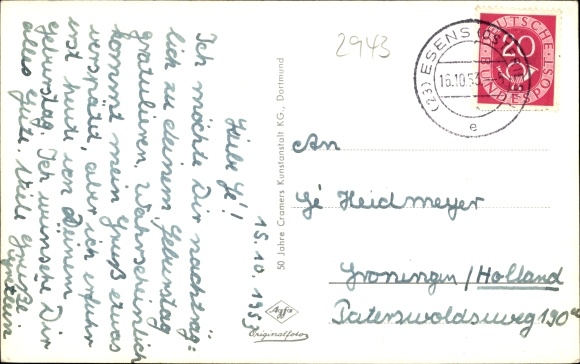 15.10.1953
Liebe Gé!
Ich möchte Dir nachträg=
lich zu deinem Geburtstag
gratulieren. Wahrscheinlich
kommt mein Gruß etwas
verspätet, aber ich erfuhr
erst heute von Deinem
Geburtstag. Ich wünsche Dir
alles Gute. Viele Grüße
2943
50 Jahre Cramers Kunstanstalt KG., Dortmund
Agfa
Originalfoto
DEUTSCHE POST
20
BUNDESPOST
(23) ESENS (OSTFR
16.10.53
e
An
Gé Heidmeyer
Groningen/Holland
Paterswoldseweg 190